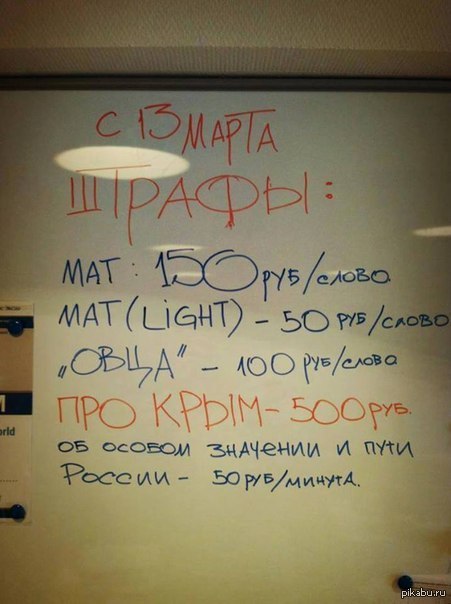 С 13 МАРТА
ШТРАФЫ:
МАТ: 150 РУБ/СЛОВО.
МАТ (LIGHT) - 50 РУБ/СЛОВО
„ОВЦА” - 100 РУБ/СЛОВО
ПРО КРЫМ - 500 РУБ.
ОБ ОСОБОМ ЗНАЧЕНИИ И ПУТИ
РОССИИ - 50 РУБ/МИНУТА.
orld
pikabu.ru